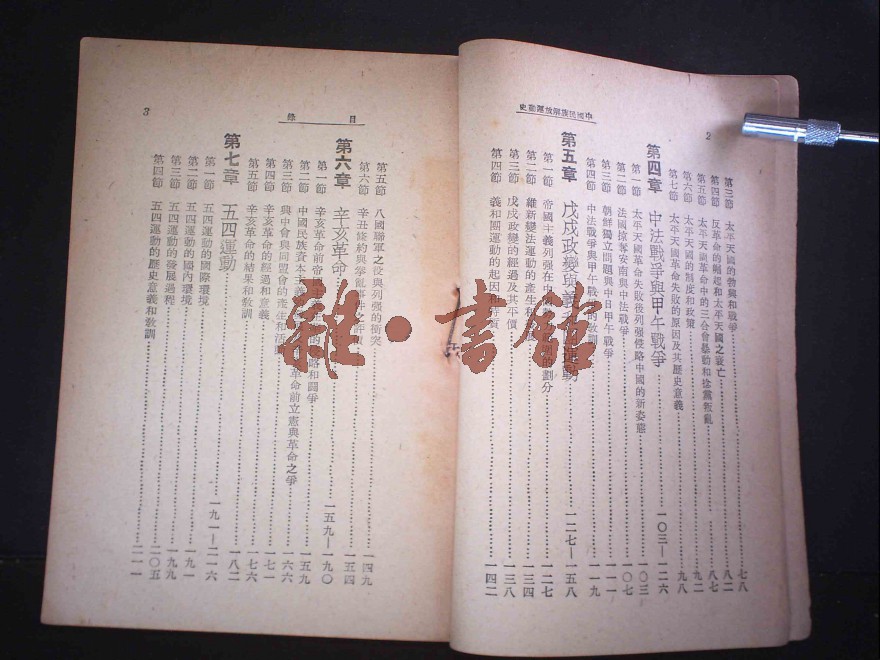 中國民族解放運動史
2
第三節 太平天國的勃興和戰爭 七八
第四節 反革命的崛起和太平天國之衰亡 八二
第五節 太平天國革命中的三合會舉動和捻黨叛亂 八七
第六節 太平天國的制度和政策 九二
第七節 太平天國革命失敗的原因及其歷史意義 九八
第四章 中法戰爭與甲午戰爭 一〇三—一二六
第一節 太平天國革命失敗後列强侵略中國的新姿態 一〇三
第二節 法國掠奪安南與中法戰爭 一〇七
第三節 朝鮮獨立問題與中日甲午戰爭 一一一
第四節 中法戰爭與甲午戰爭的敎訓 一一九
第五章 戊戌政變與義和團運動 一二七—一五八
第一節 帝國主義列强在中國 的劃分 一二七
第二節 維新變法運動的產生和 一三四
第三節 戊戌政變的經過及其平價 一三八
第四節 義和團運動的起因和特質 一四二
目錄
3
第五節 八國聯軍之役與列强的衝突 一四九
第六節 辛丑條約與拳亂事件之評價 一五四
第六章 辛亥革命 一五九—一九〇
第一節 辛亥革命前帝國主義 的 略和鬪爭 一五九
第二節 中國民族資本主義 革命前立憲與革命之爭 一六六
第三節 興中會與同盟會的產生和活動 一七一
第四節 辛亥革命的經過和意義 一七六
第五節 辛亥革命的結果和敎訓 一八二
第七章 五四運動 一九一—二一六
第一節 五四運動的國際環境 一九一
第二節 五四運動的國內環境 一九九
第三節 五四運動的發展過程 二〇五
第四節 五四運動的歷史意義和敎訓 二一一
雜·書館